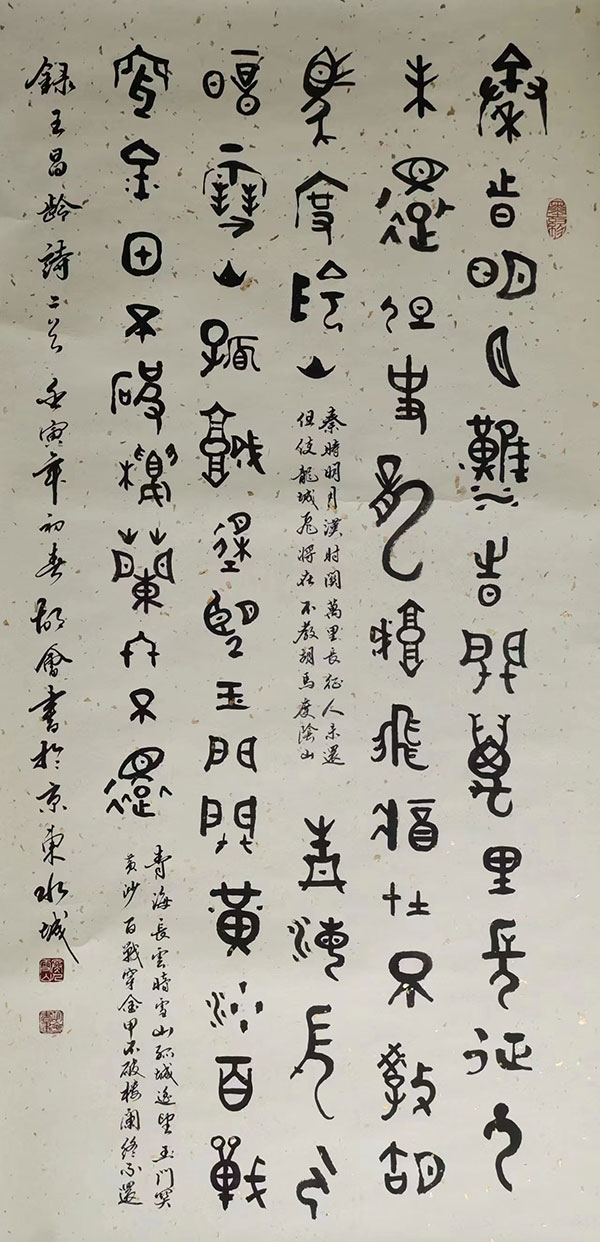 秦時明月漢時關萬里長征人
未還但使龍城飛將在不教胡
馬度陰山
秦時明月漢時關萬里長征人未還
但使龍城飛將在不教胡馬度陰山
青海長雲
暗雪山孤城遙望玉門關黃沙百戰
穿金甲不破樓蘭終不還
青海長雲暗雪山孤城遙望玉门関
黄沙百戰穿金甲不破楼蘭終不還
録王昌齡詩二首壬寅年初春胡會書於京東水城